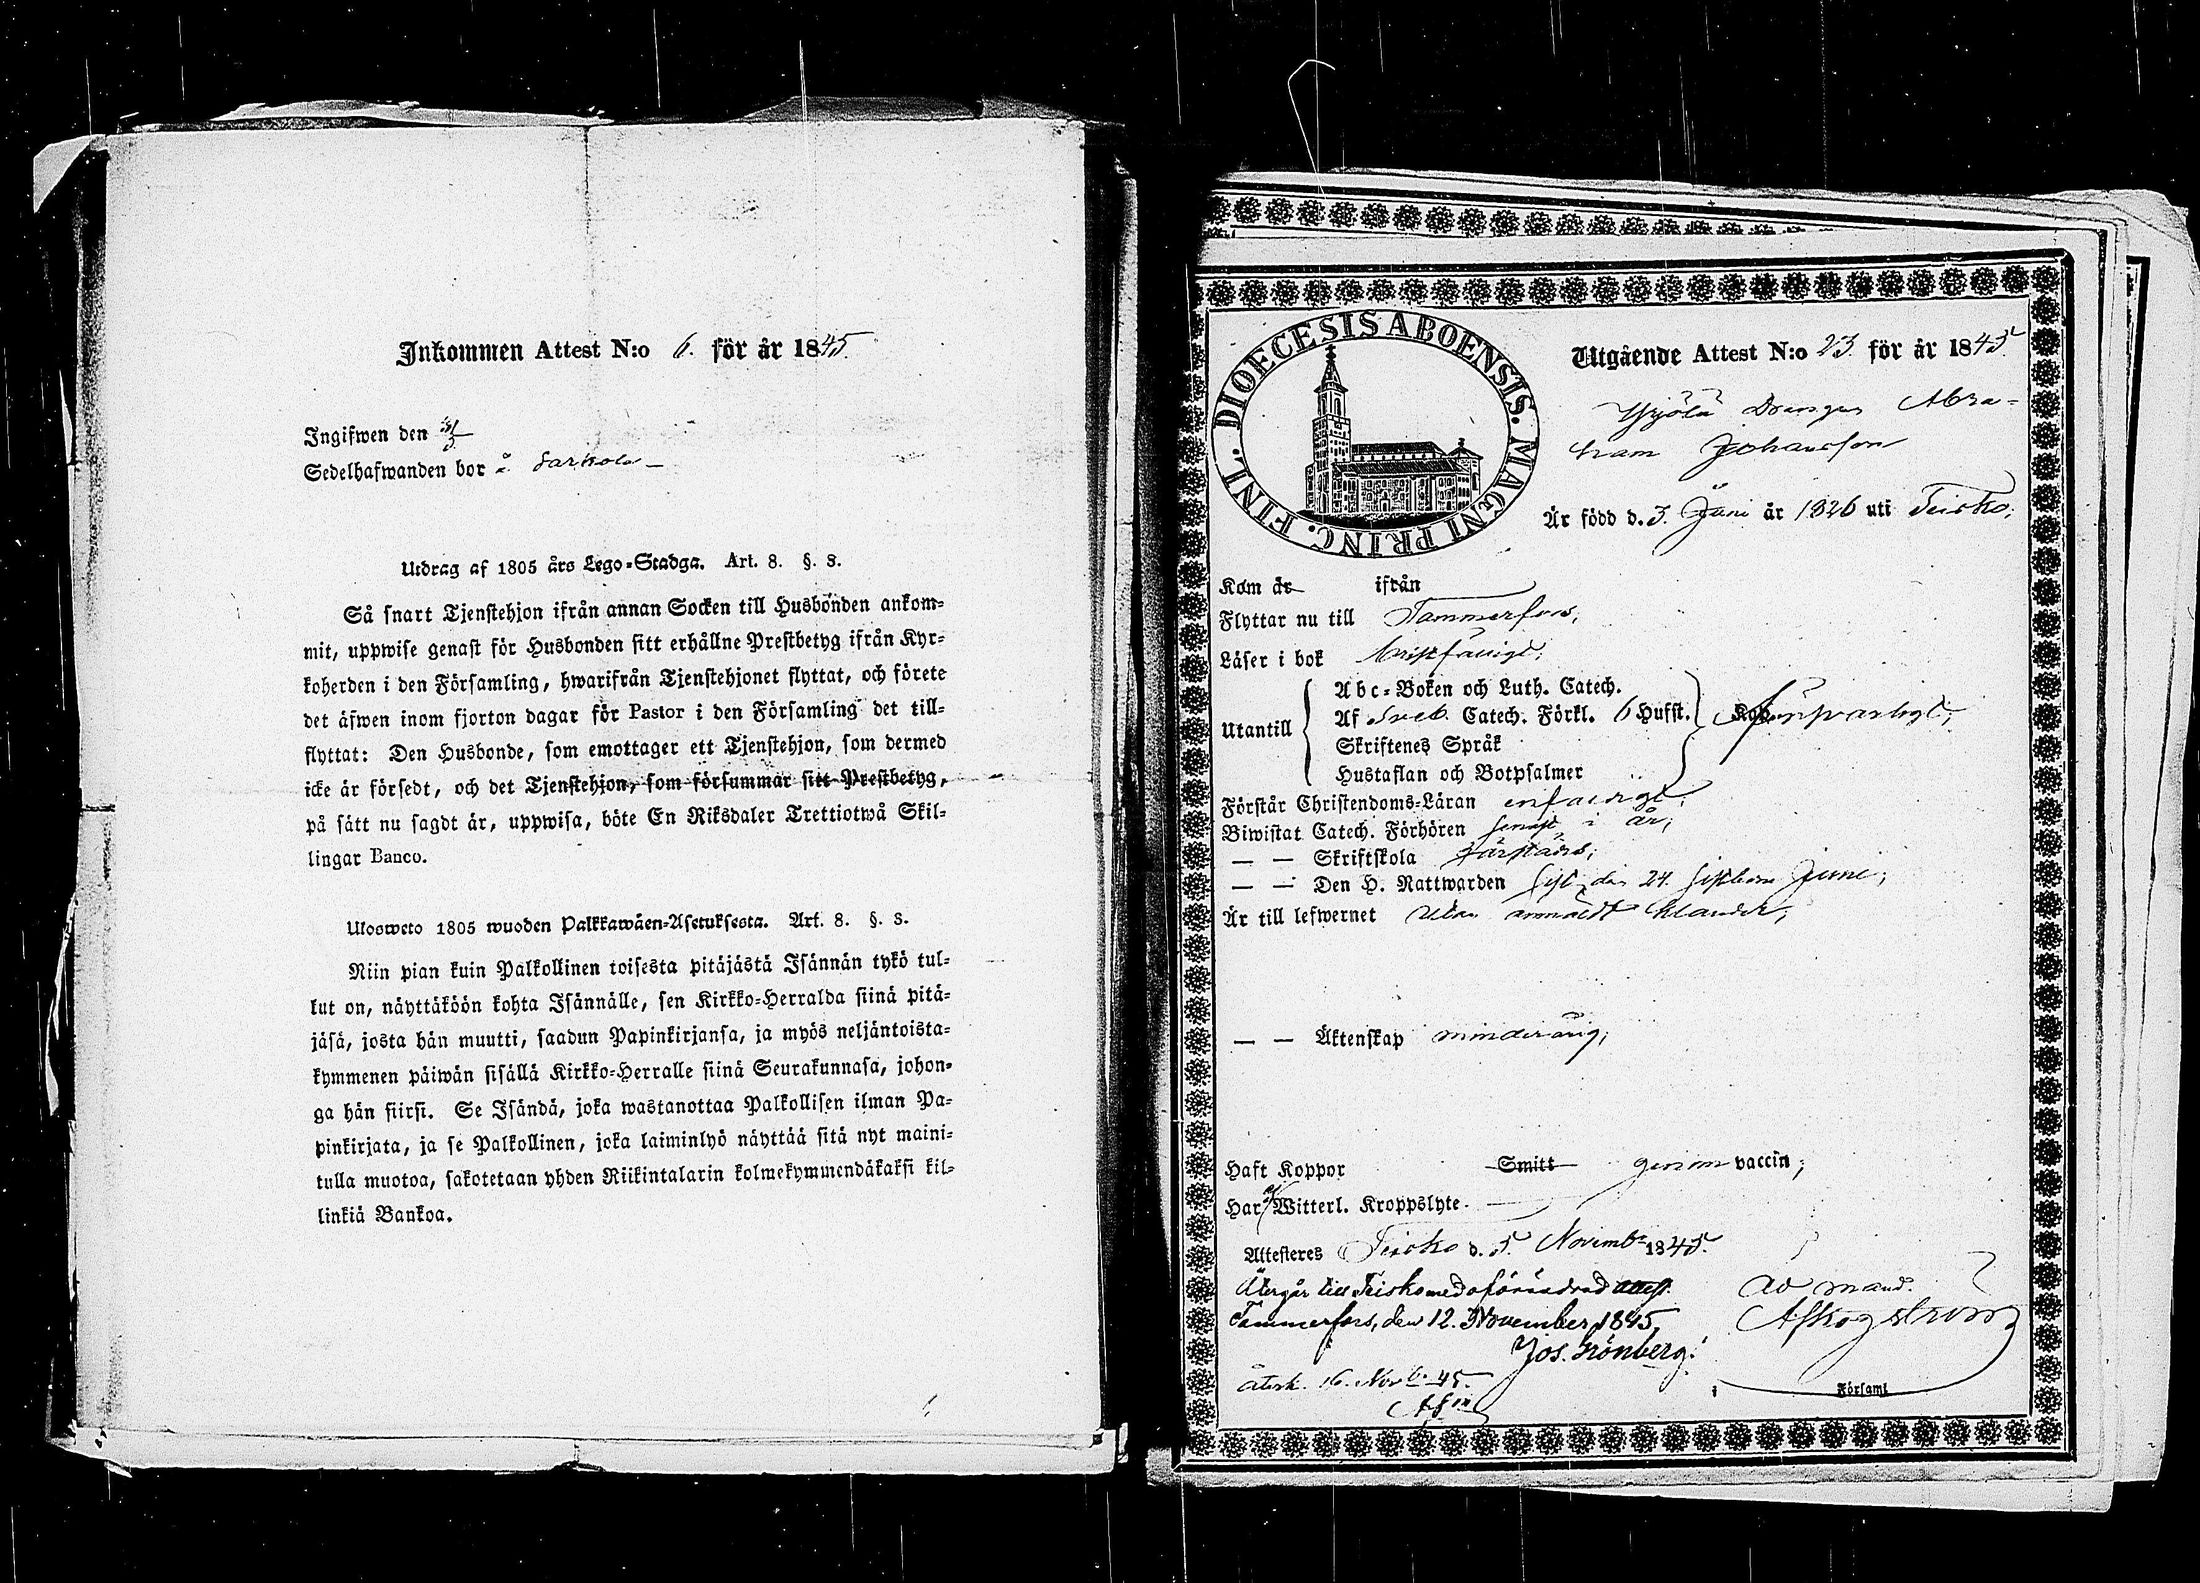 Inkommen Attest N:o 6. för år 1845.
Ingifwen den
Sedelhafwanden bor å Sarkola
Utdrag af 1805 års Lego-Stadga. Art. 8. §. 8.
Så snart Tjenstehjon ifrån annan Socken till Husbonden ankom-
mit, uppwise genast för Husbonden sitt erhållne Prestbetyg ifrån Kyr-
koherden i den Församling, hwarifrån Tjenstehjonet flyttat, och förete
det äfwen inom fjorton dagar för Pastor i den Församling det till-
flyttat: Den Husbonde, som emottager ett Tjenstehjon, som dermed
icke är försedt, och det Tjenstehjon, som försummar sitt Prestbetyg,
på sätt nu sagdt är, uppwisa, böte En Riksdaler Trettiotwå Skil-
lingar Banco.
Ulosweto 1805 wuoden Palkkawäen-Asetuksesta. Art. 8. §. 8.
Niin pian kuin Palkollinen toisesta pitäjästä Isännän tykö tul-
lut on, näyttäköön kohta Isännälle, sen Kirkko-Herralda siinä pitä-
jäsä, josta hän muutti, saadun Papinkirjansa, ja myös neljäntoista-
kymmenen päiwän sisällä Kirkko-Herralle siinä Seurakunnasa, johon-
ga hän siirsi. Se Isändä, joka wastanottaa Palkollisen ilman Pa-
pinkirjata, ja se Palkollinen, joka laiminlyö näyttää sitä nyt maini-
tulla muotoa, sakotetaan yhden Riikintalarin kolmekymmendäkaksi kil-
linkiä Bankoa.
DIOECESIS ABOENSIS. MAGNI PRINC. FINL.
Utgående Attest N:o 23. för år 1845.
Yrjölä Drengen Abra-
ham Johansson
Är född d. 3. Juni år 1826 uti Teisko;
Kom år ifrån
Flyttar nu till Tammerfors;
Läser i bok
Utantill
Abc-Boken och Luth. Catech.
Af Sveb. Catech. Förkl. 6 Hufst.
Skriftenes Språk
Hustaflan och Botpsalmer
försvarligt;
Förstår Christendoms-Läran enfaldigt;
Biwistat Catech. Förhören senast i år;
— — Skriftskola
— — Den H. Nattwarden sist den 24. sistledne Junii;
Är till lefwernet utan anmäldt klander;
— — Äktenskap minderårig;
Haft Koppor Smitt genom vaccin;
Har ej Witterl. Kroppslyte.
Attesteres Teisko d. 5. Novemb. 1845.
Ad mand.
AfSkogström
Församl
Återgår till Teisko med oförändrad attest.
Tammerfors, den 12. November 1845.
Jos. Grönberg.
återk. 16. Novb. 45.